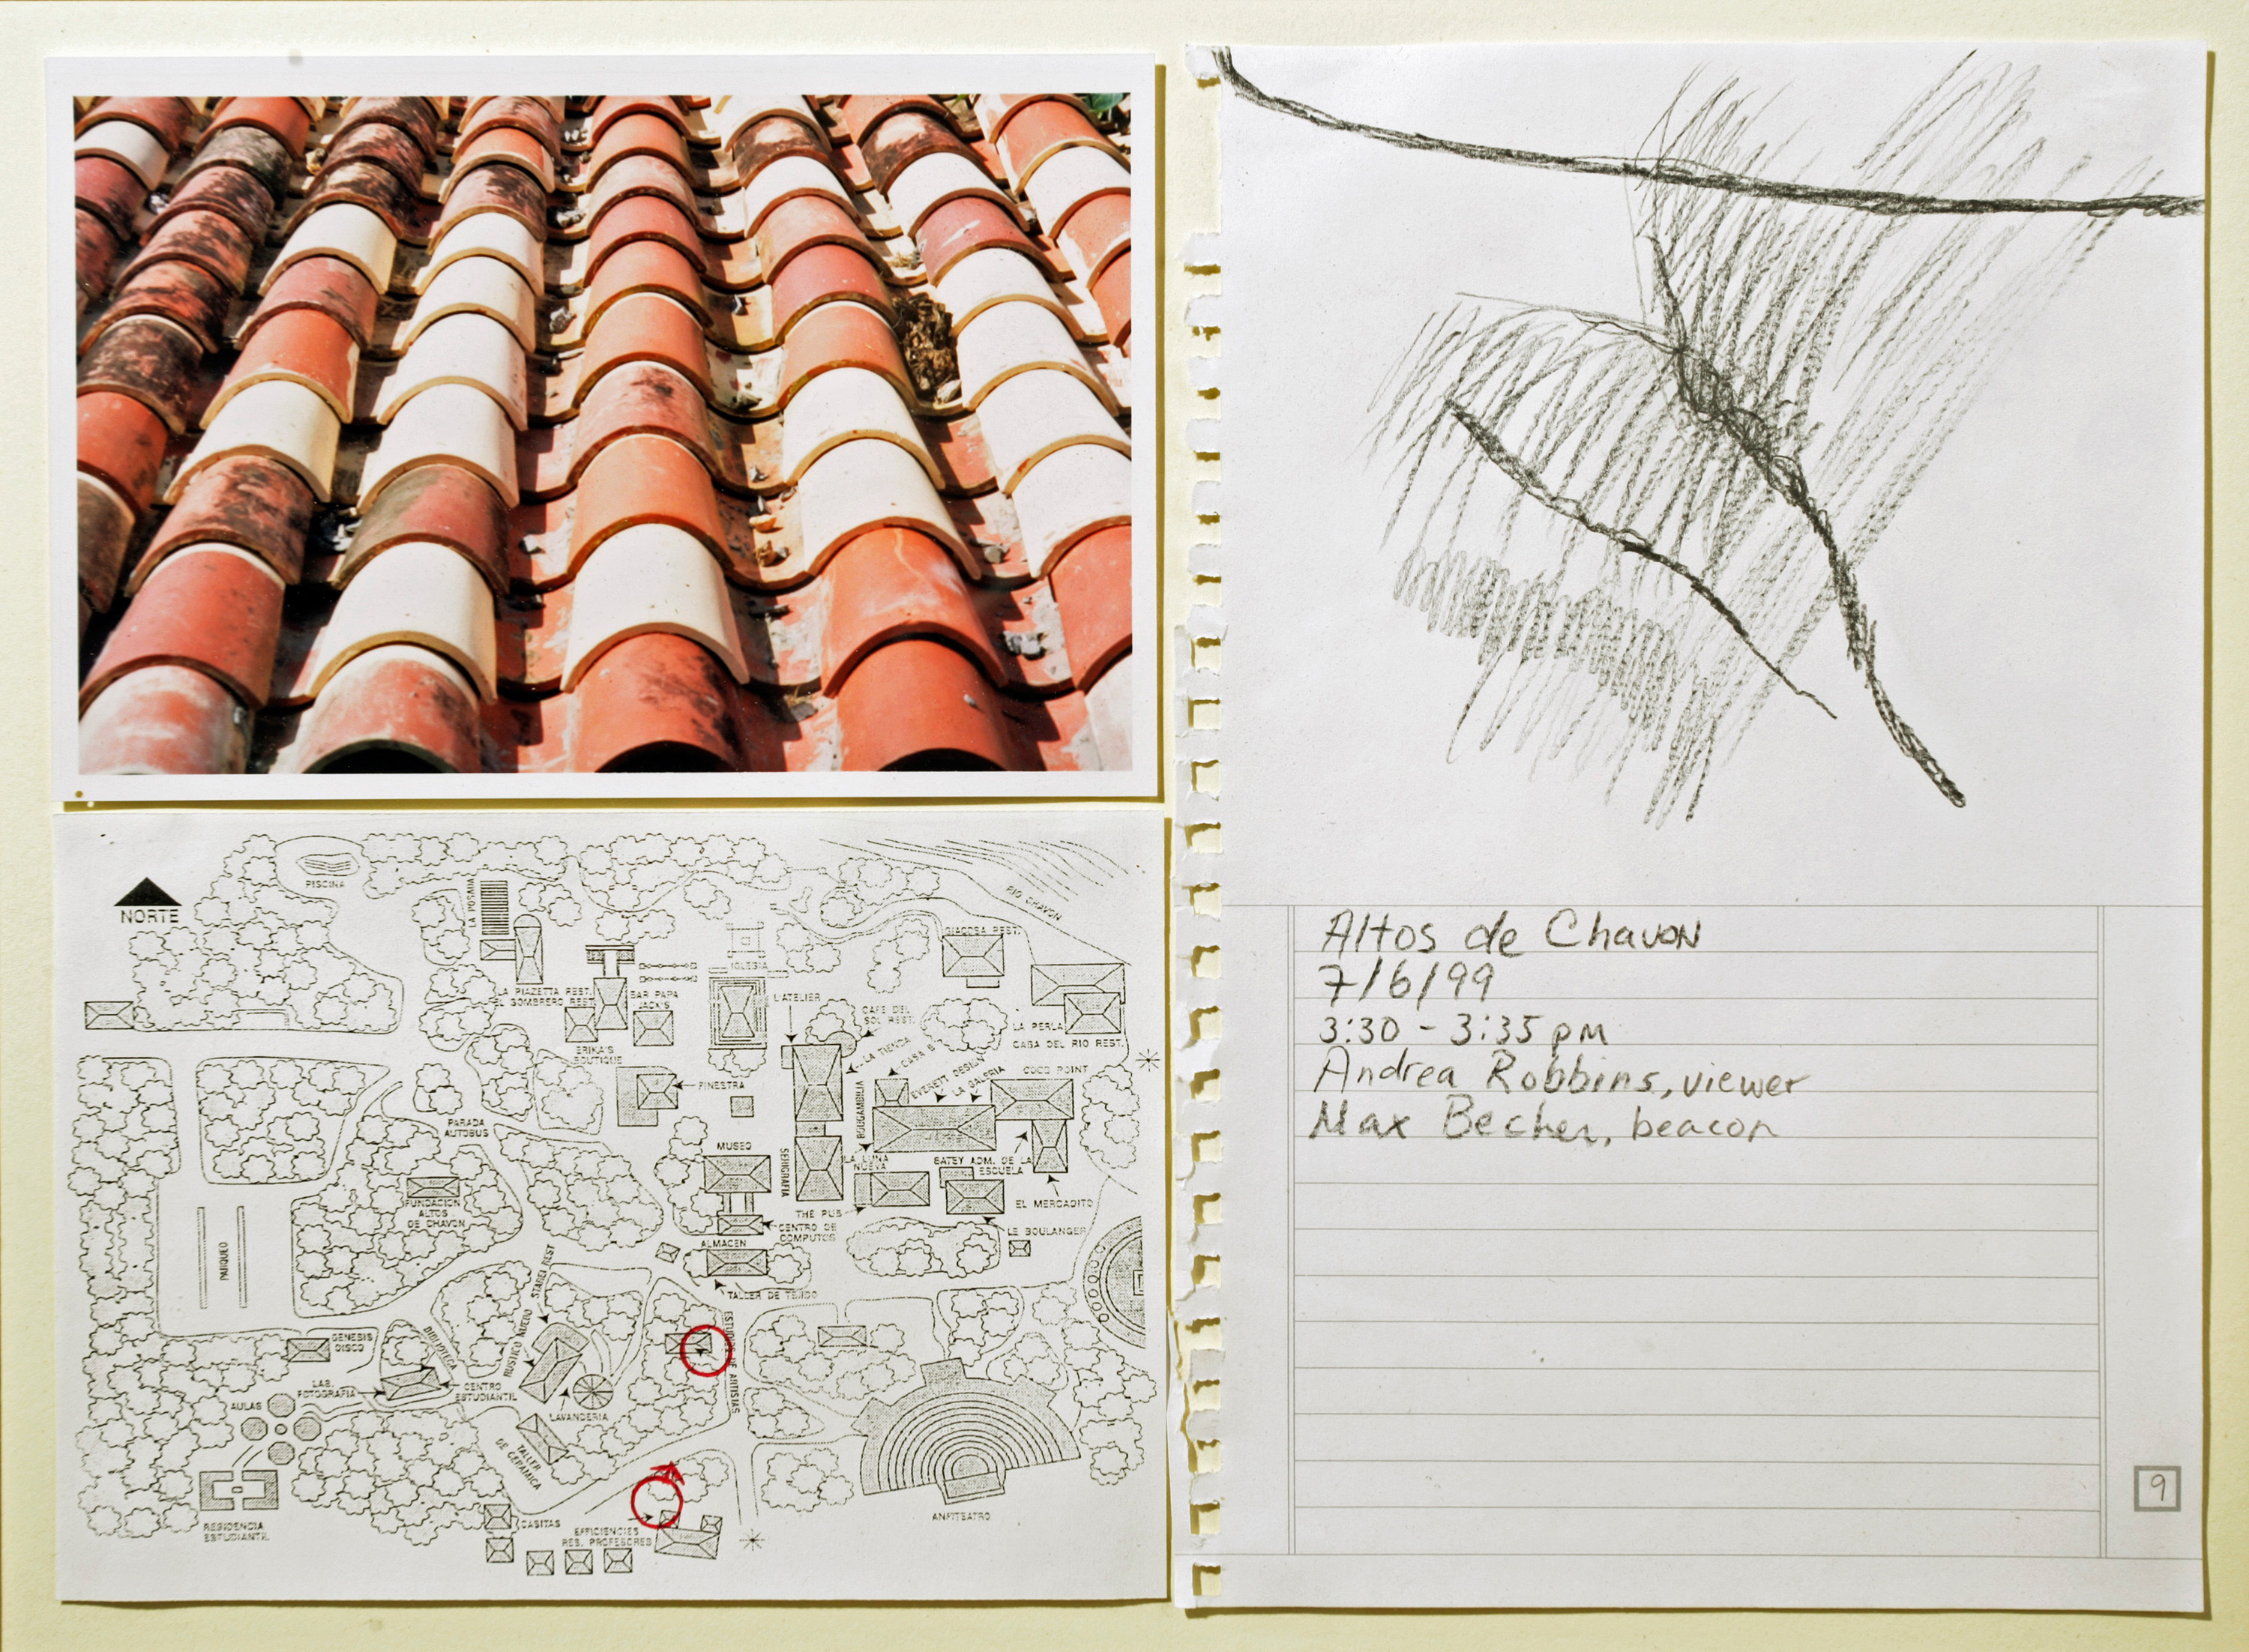 PISCINA
NORTE
LA POSADA
RIO CHAVON
GIACOSA REST.
IGLESIA
LA PIAZETTA REST.
EL SOMBRERO REST.
BAR PAPA
JACK'S
L'ATELIER
CAFE DEL
SOL REST.
LA TIENDA
CASA B
LA PERLA
CASA DEL RIO REST.
ERIKA'S
BOUTIQUE
FINESTRA
EVERETT DESIGN
LA GALERIA
COCO POINT
BOUGANBILIA
PARADA
AUTOBUS
MUSEO
SERIGRAFIA
LA LUNA
NUEVA
BATEY ADM. DE LA
ESCUELA
FUNDACION
ALTOS
DE CHAVON
THE PUB
EL MERCADITO
CENTRO DE
COMPUTOS
LE BOULANGER
ALMACEN
PARQUEO
TALLER DE TEJIDO
RUSTICO NUEVO
STABLE REST
ESTUDIOS DE ARTISTAS
GENESIS
DISCO
BIBLIOTECA
LAB.
FOTOGRAFIA
CENTRO
ESTUDIANTIL
AULAS
LAVANDERIA
TALLER
DE CERAMICA
RESIDENCIA
ESTUDIANTIL
CASITAS
EFFICIENCIES
RES. PROFESORES
ANFITEATRO
Altos de Chavon
7/6/99
3:30 - 3:35 pm
Andrea Robbins, viewer
Max Becher, beacon
9